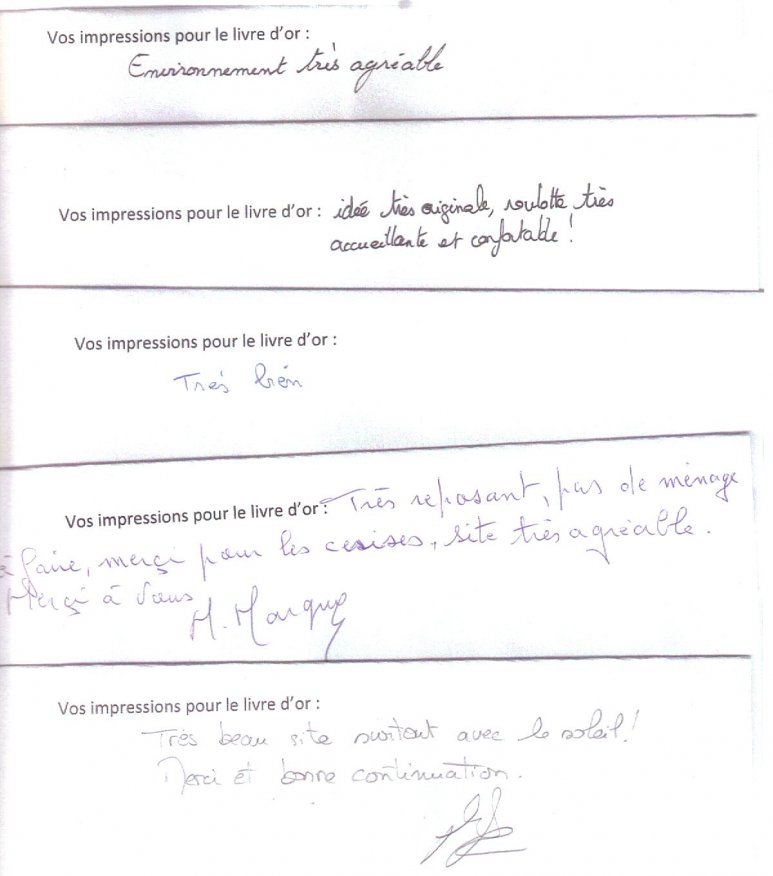 Vos impressions pour le livre d'or :
Environnement très agréable
Vos impressions pour le livre d'or : idée très originale, roulotte très
accueillante et confortable !
Vos impressions pour le livre d'or :
Très bien
Vos impressions pour le livre d'or : Très reposant, pas de ménage
à faire, merçi pour les cerises, site très agréable.
Merçi à vous
M.
Vos impressions pour le livre d'or :
Très beau site surtout avec le soleil !
Merci et bonne continuation.